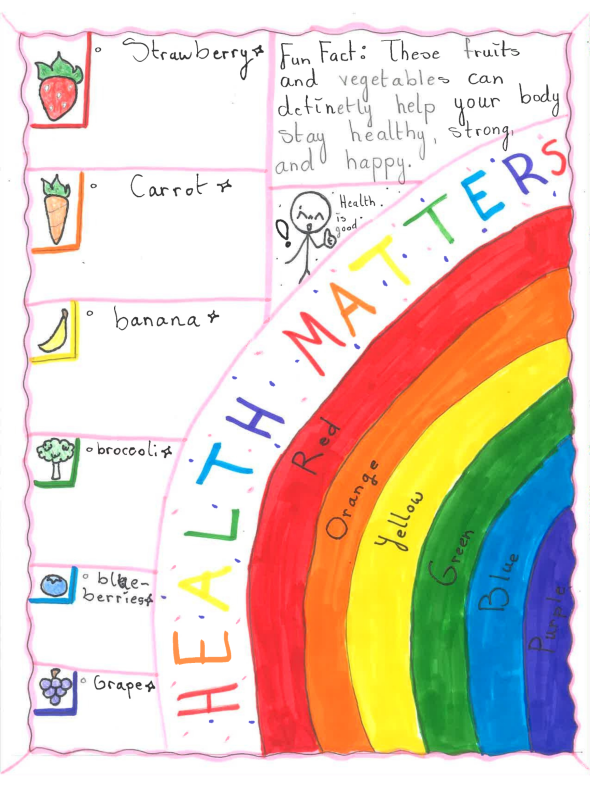 Strawberry
Fun Fact: These fruits
and vegetables can
definetly help your body
stay healthy, strong,
and happy.
Carrot
Health
is
good
!
banana
brocooli
blue-
berries
Grape
HEALTH MATTERS
Red
Orange
Yellow
Green
Blue
Purple